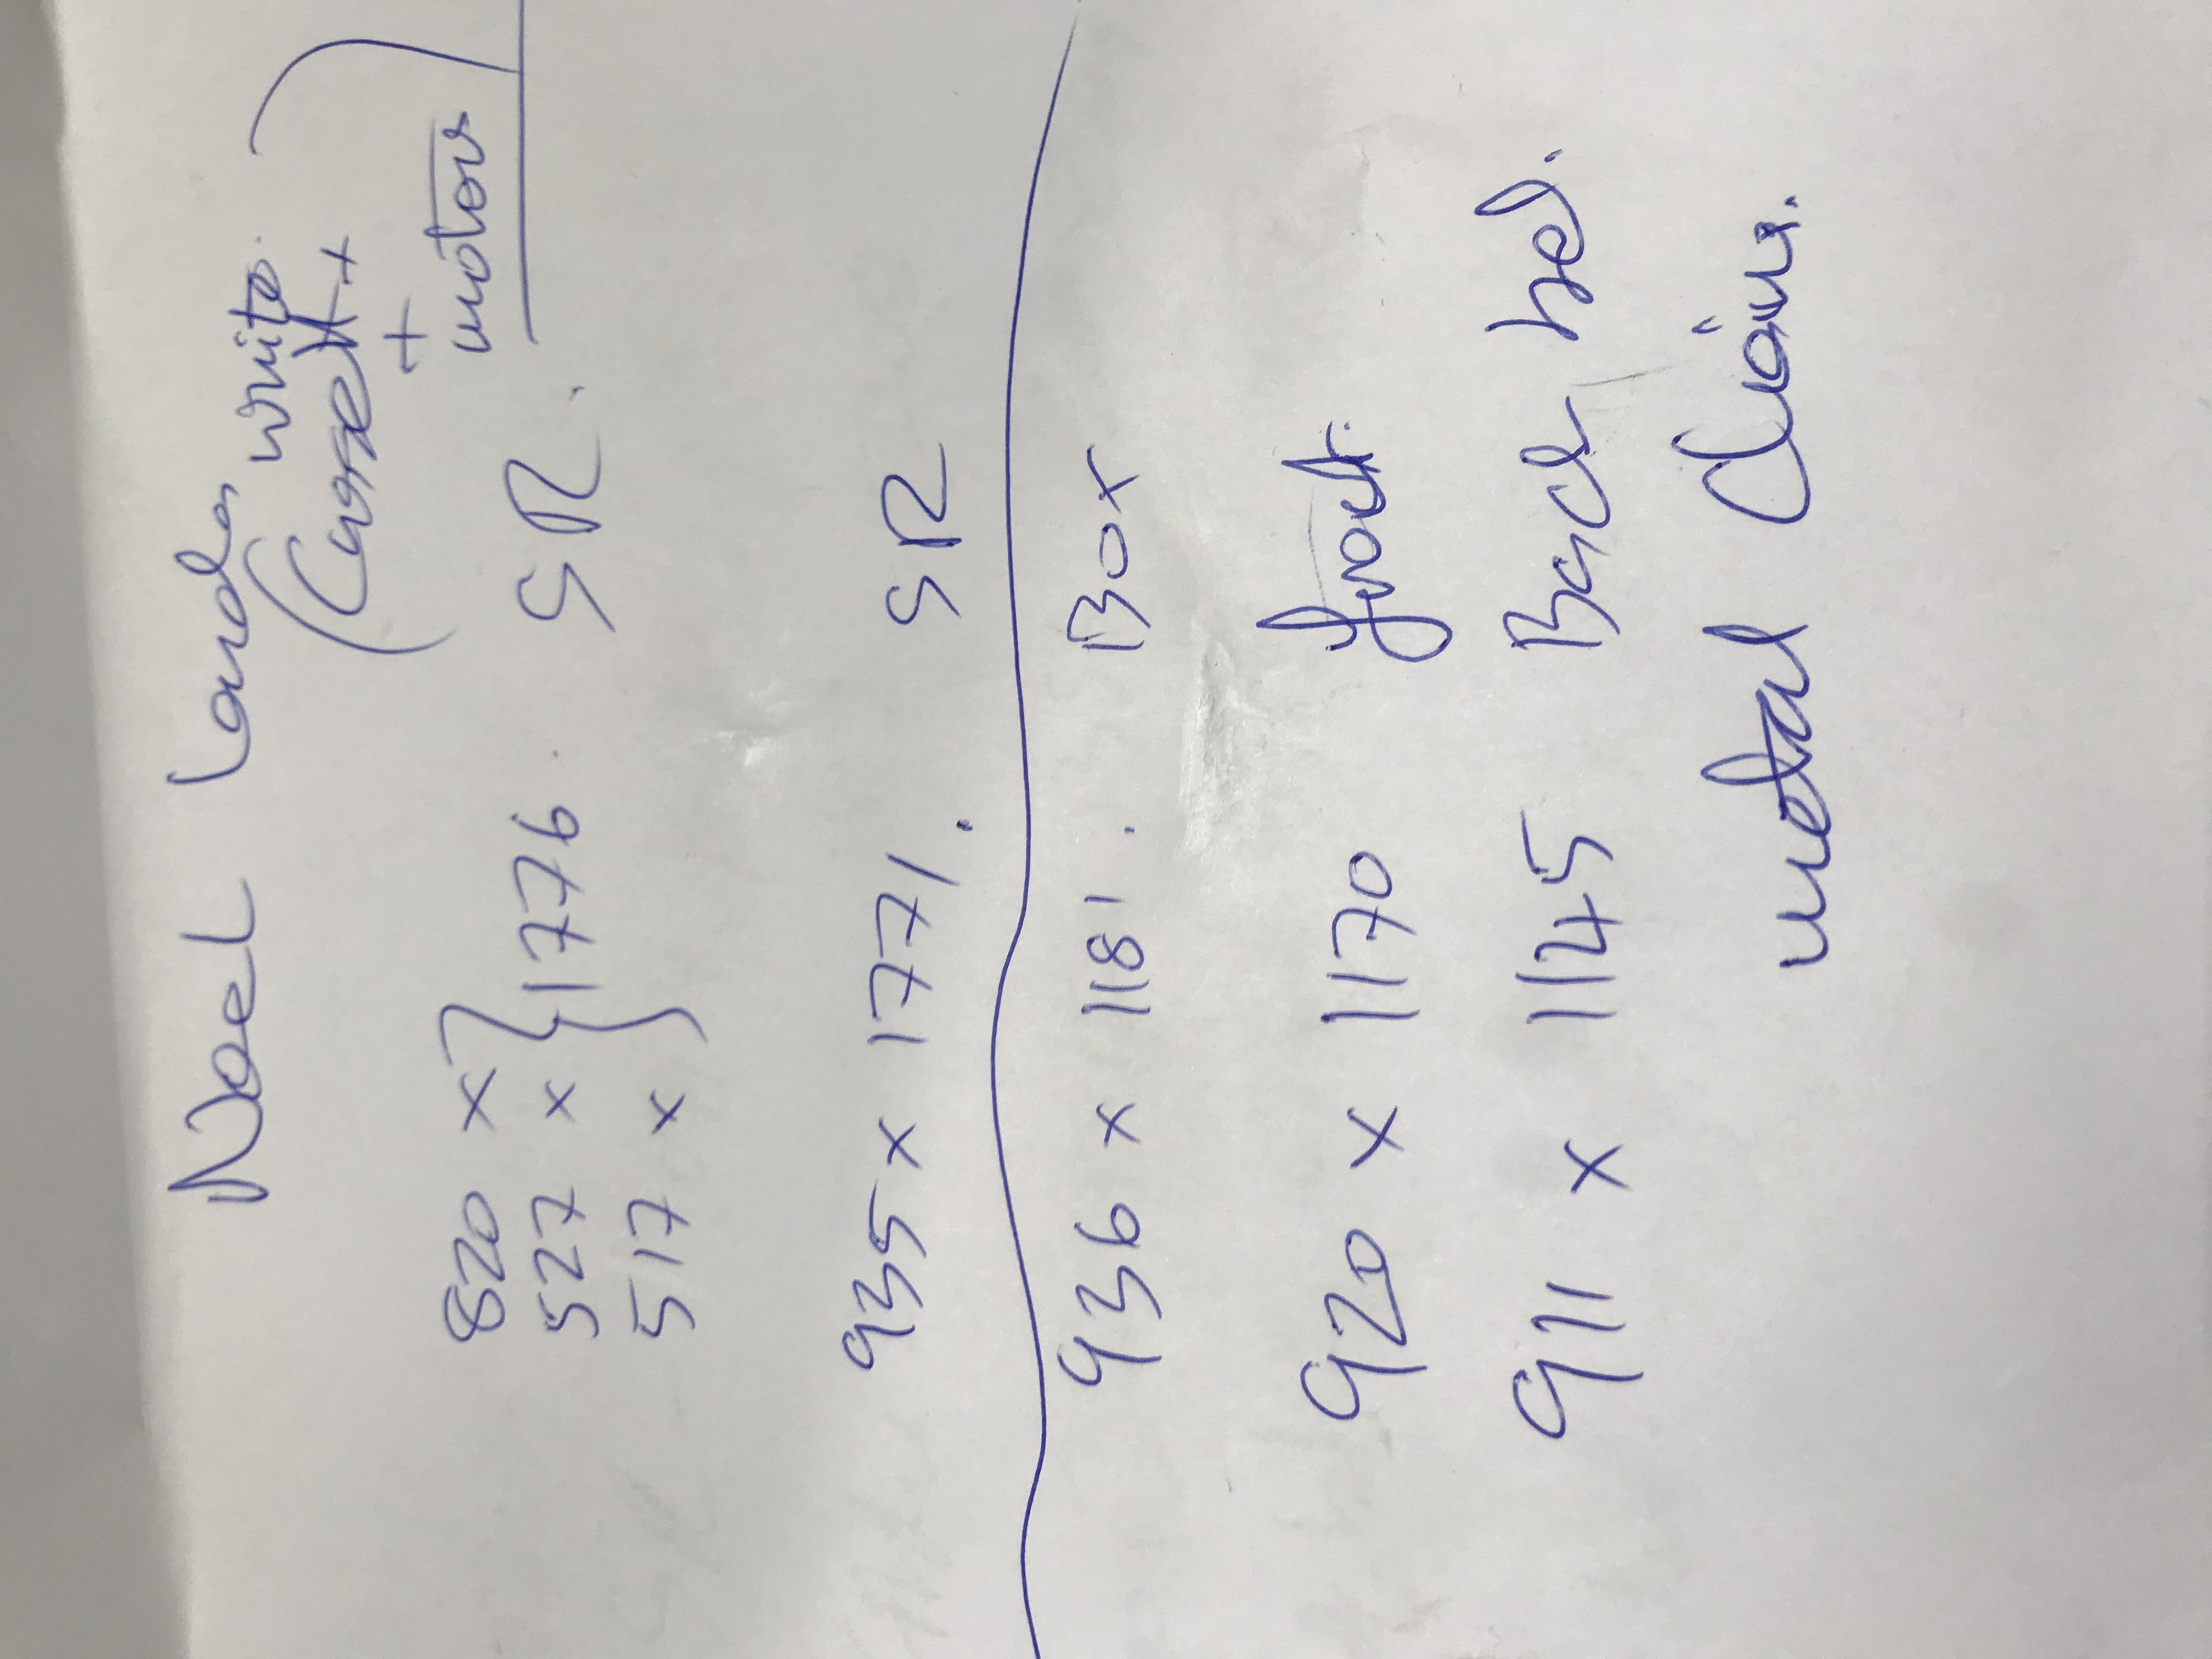 Noel Lander
white
(Cassett +
+
motor
820 x
527 x } 1776. SR.
517 x
935 x 1771. SR
936 x 1181. Box
920 x 1170
911 x 1145 Back bed.
metal Chain.